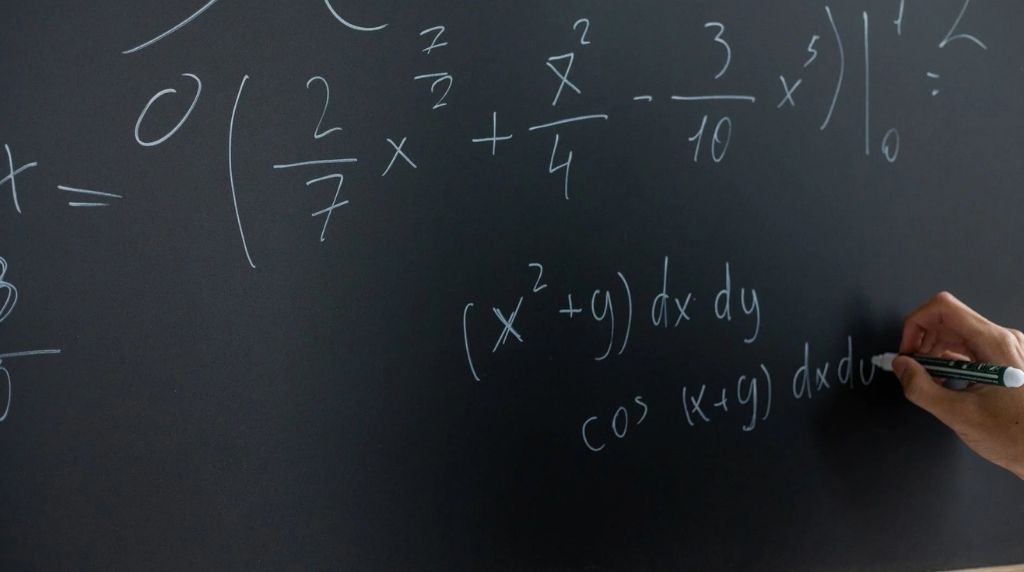 x = 0 ( 2/7 x^7/2 + x^2/4 - 3/10 x^5 ) |_0^1 =
(x^2 + y) dx dy
cos (x + y) dx d